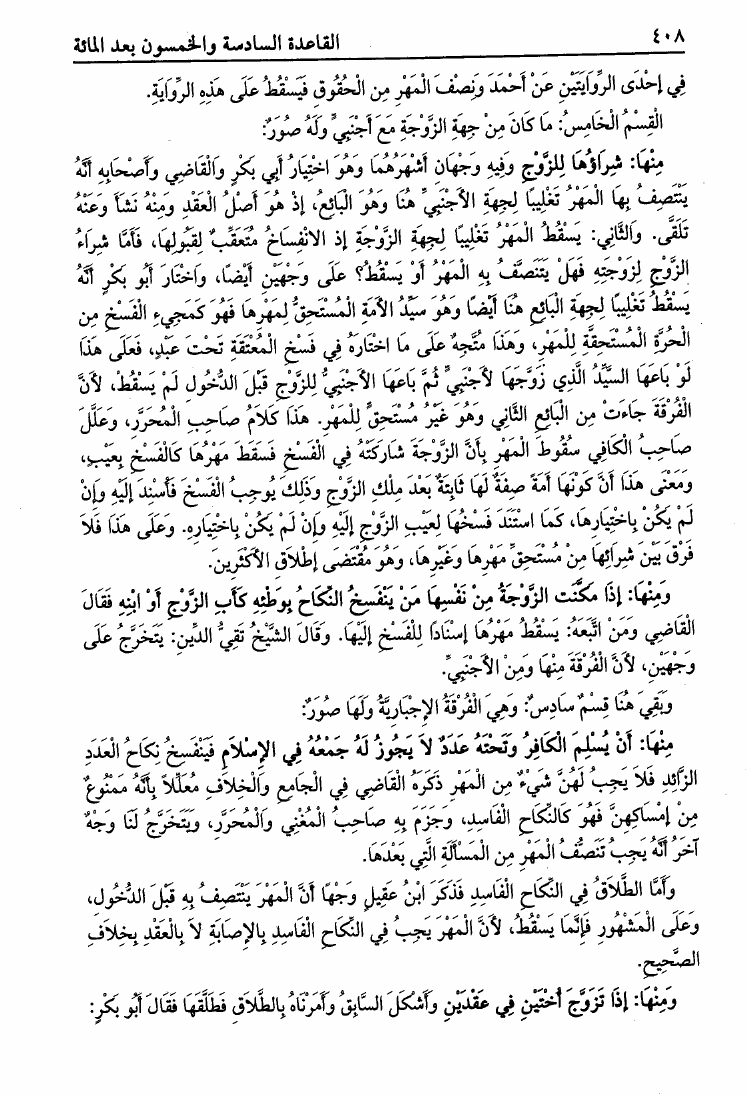 ٤٠٨ القاعدة السادسة والخمسون بعد المائة
فِي إِحْدَى الرِّوَايَتَيْنِ عَنْ أَحْمَدَ وَنِصْفَ الْمَهْرِ مِنَ الْحُقُوقِ فَيَسْقُطُ عَلَى هَذِهِ الرِّوَايَةِ.
الْقِسْمُ الْخَامِسُ: مَا كَانَ مِنْ جِهَةِ الزَّوْجَةِ مَعَ أَجْنَبِيٍّ وَلَهُ صُوَرٌ:
مِنْهَا: شِرَاؤُهَا لِلزَّوْجِ وَفِيهِ وَجْهَانِ أَشْهَرُهُمَا وَهُوَ اخْتِيَارُ أَبِي بَكْرٍ وَالْقَاضِي وَأَصْحَابِهِ أَنَّهُ
يَنْتَصِفُ بِهَا الْمَهْرُ تَغْلِيبًا لِجِهَةِ الأَجْنَبِيِّ هُنَا وَهُوَ الْبَائِعُ، إِذْ هُوَ أَصْلُ الْعَقْدِ وَمِنْهُ نَشَأَ وَعَنْهُ
تَلَقَّى. وَالثَّانِي: يَسْقُطُ الْمَهْرُ تَغْلِيبًا لِجِهَةِ الزَّوْجَةِ إِذِ الانْفِسَاخُ مُتَعَقِّبٌ لِقَبُولِهَا، فَأَمَّا شِرَاءُ
الزَّوْجِ لِزَوْجَتِهِ فَهَلْ يَتَنَصَّفُ بِهِ الْمَهْرُ أَوْ يَسْقُطُ؟ عَلَى وَجْهَيْنِ أَيْضًا، وَاخْتَارَ أَبُو بَكْرٍ أَنَّهُ
يَسْقُطُ تَغْلِيبًا لِجِهَةِ الْبَائِعِ هُنَا أَيْضًا وَهُوَ سَيِّدُ الأَمَةِ الْمُسْتَحِقُّ لِمَهْرِهَا فَهُوَ كَمَجِيءِ الْفَسْخِ مِن
الْحُرَّةِ الْمُسْتَحِقَّةِ لِلْمَهْرِ، وَهَذَا مُتَّجِهٌ عَلَى مَا اخْتَارَهُ فِي فَسْخِ الْمُعْتَقَةِ تَحْتَ عَبْدٍ، فَعَلَى هَذَا
لَوْ بَاعَهَا السَّيِّدُ الَّذِي زَوَّجَهَا لأَجْنَبِيٍّ ثُمَّ بَاعَهَا الأَجْنَبِيُّ لِلزَّوْجِ قَبْلَ الدُّخُولِ لَمْ يَسْقُطْ، لأَنَّ
الْفُرْقَةَ جَاءَتْ مِنَ الْبَائِعِ الثَّانِي وَهُوَ غَيْرُ مُسْتَحِقٍّ لِلْمَهْرِ. هَذَا كَلَامُ صَاحِبِ الْمُحَرَّرِ، وَعَلَّلَ
صَاحِبُ الْكَافِي سُقُوطَ الْمَهْرِ بِأَنَّ الزَّوْجَةَ شَارَكَتْهُ فِي الْفَسْخِ فَسَقَطَ مَهْرُهَا كَالْفَسْخِ بِعَيْبٍ،
وَمَعْنَى هَذَا أَنَّ كَوْنَهَا أَمَةً صِفَةٌ لَهَا ثَابِتَةٌ بَعْدَ مِلْكِ الزَّوْجِ وَذَلِكَ يُوجِبُ الْفَسْخَ فَأُسْنِدَ إِلَيْهِ وَإِنْ
لَمْ يَكُنْ بِاخْتِيَارِهَا، كَمَا اسْتَنَدَ فَسْخُهَا لِعَيْبِ الزَّوْجِ إِلَيْهِ وَإِنْ لَمْ يَكُنْ بِاخْتِيَارِهِ. وَعَلَى هَذَا فَلَا
فَرْقَ بَيْنَ شِرَائِهَا مِنْ مُسْتَحِقِّ مَهْرِهَا وَغَيْرِهَا، وَهُوَ مُقْتَضَى إِطْلَاقِ الأَكْثَرِينَ.
وَمِنْهَا: إِذَا مَكَّنَتِ الزَّوْجَةُ مِنْ نَفْسِهَا مَنْ يَنْفَسِخُ النِّكَاحُ بِوَطْئِهِ كَأَبِ الزَّوْجِ أَوْ ابْنِهِ فَقَالَ
الْقَاضِي وَمَنِ اتَّبَعَهُ: يَسْقُطُ مَهْرُهَا إِسْنَادًا لِلْفَسْخِ إِلَيْهَا. وَقَالَ الشَّيْخُ تَقِيُّ الدِّينِ: يَتَخَرَّجُ عَلَى
وَجْهَيْنِ، لأَنَّ الْفُرْقَةَ مِنْهَا وَمِنَ الأَجْنَبِيِّ.
وَبَقِيَ هُنَا قِسْمٌ سَادِسٌ: وَهِيَ الْفُرْقَةُ الإِجْبَارِيَّةُ وَلَهَا صُوَرٌ:
مِنْهَا: أَنْ يُسْلِمَ الْكَافِرُ وَتَحْتَهُ عَدَدٌ لَا يَجُوزُ لَهُ جَمْعُهُ فِي الإِسْلَامِ فَيَنْفَسِخُ نِكَاحُ الْعَدَدِ
الزَّائِدِ فَلَا يَجِبُ لَهُنَّ شَيْءٌ مِنَ الْمَهْرِ ذَكَرَهُ الْقَاضِي فِي الْجَامِعِ وَالْخِلَافِ مُعَلِّلًا بِأَنَّهُ مَمْنُوعٌ
مِنْ إِمْسَاكِهِنَّ فَهُوَ كَالنِّكَاحِ الْفَاسِدِ، وَجَزَمَ بِهِ صَاحِبُ الْمُغْنِي وَالْمُحَرَّرِ، وَيَتَخَرَّجُ لَنَا وَجْهٌ
آخَرُ أَنَّهُ يَجِبُ تَنَصُّفُ الْمَهْرِ مِنَ الْمَسْأَلَةِ الَّتِي بَعْدَهَا.
وَأَمَّا الطَّلَاقُ فِي النِّكَاحِ الْفَاسِدِ فَذَكَرَ ابْنُ عَقِيلٍ وَجْهًا أَنَّ الْمَهْرَ يَنْتَصِفُ بِهِ قَبْلَ الدُّخُولِ،
وَعَلَى الْمَشْهُورِ فَإِنَّمَا يَسْقُطُ، لأَنَّ الْمَهْرَ يَجِبُ فِي النِّكَاحِ الْفَاسِدِ بِالإِصَابَةِ لَا بِالْعَقْدِ بِخِلَافِ
الصَّحِيحِ.
وَمِنْهَا: إِذَا تَزَوَّجَ أُخْتَيْنِ فِي عَقْدَيْنِ وَأَشْكَلَ السَّابِقُ وَأَمَرْنَاهُ بِالطَّلَاقِ فَطَلَّقَهَا فَقَالَ أَبُو بَكْرٍ: